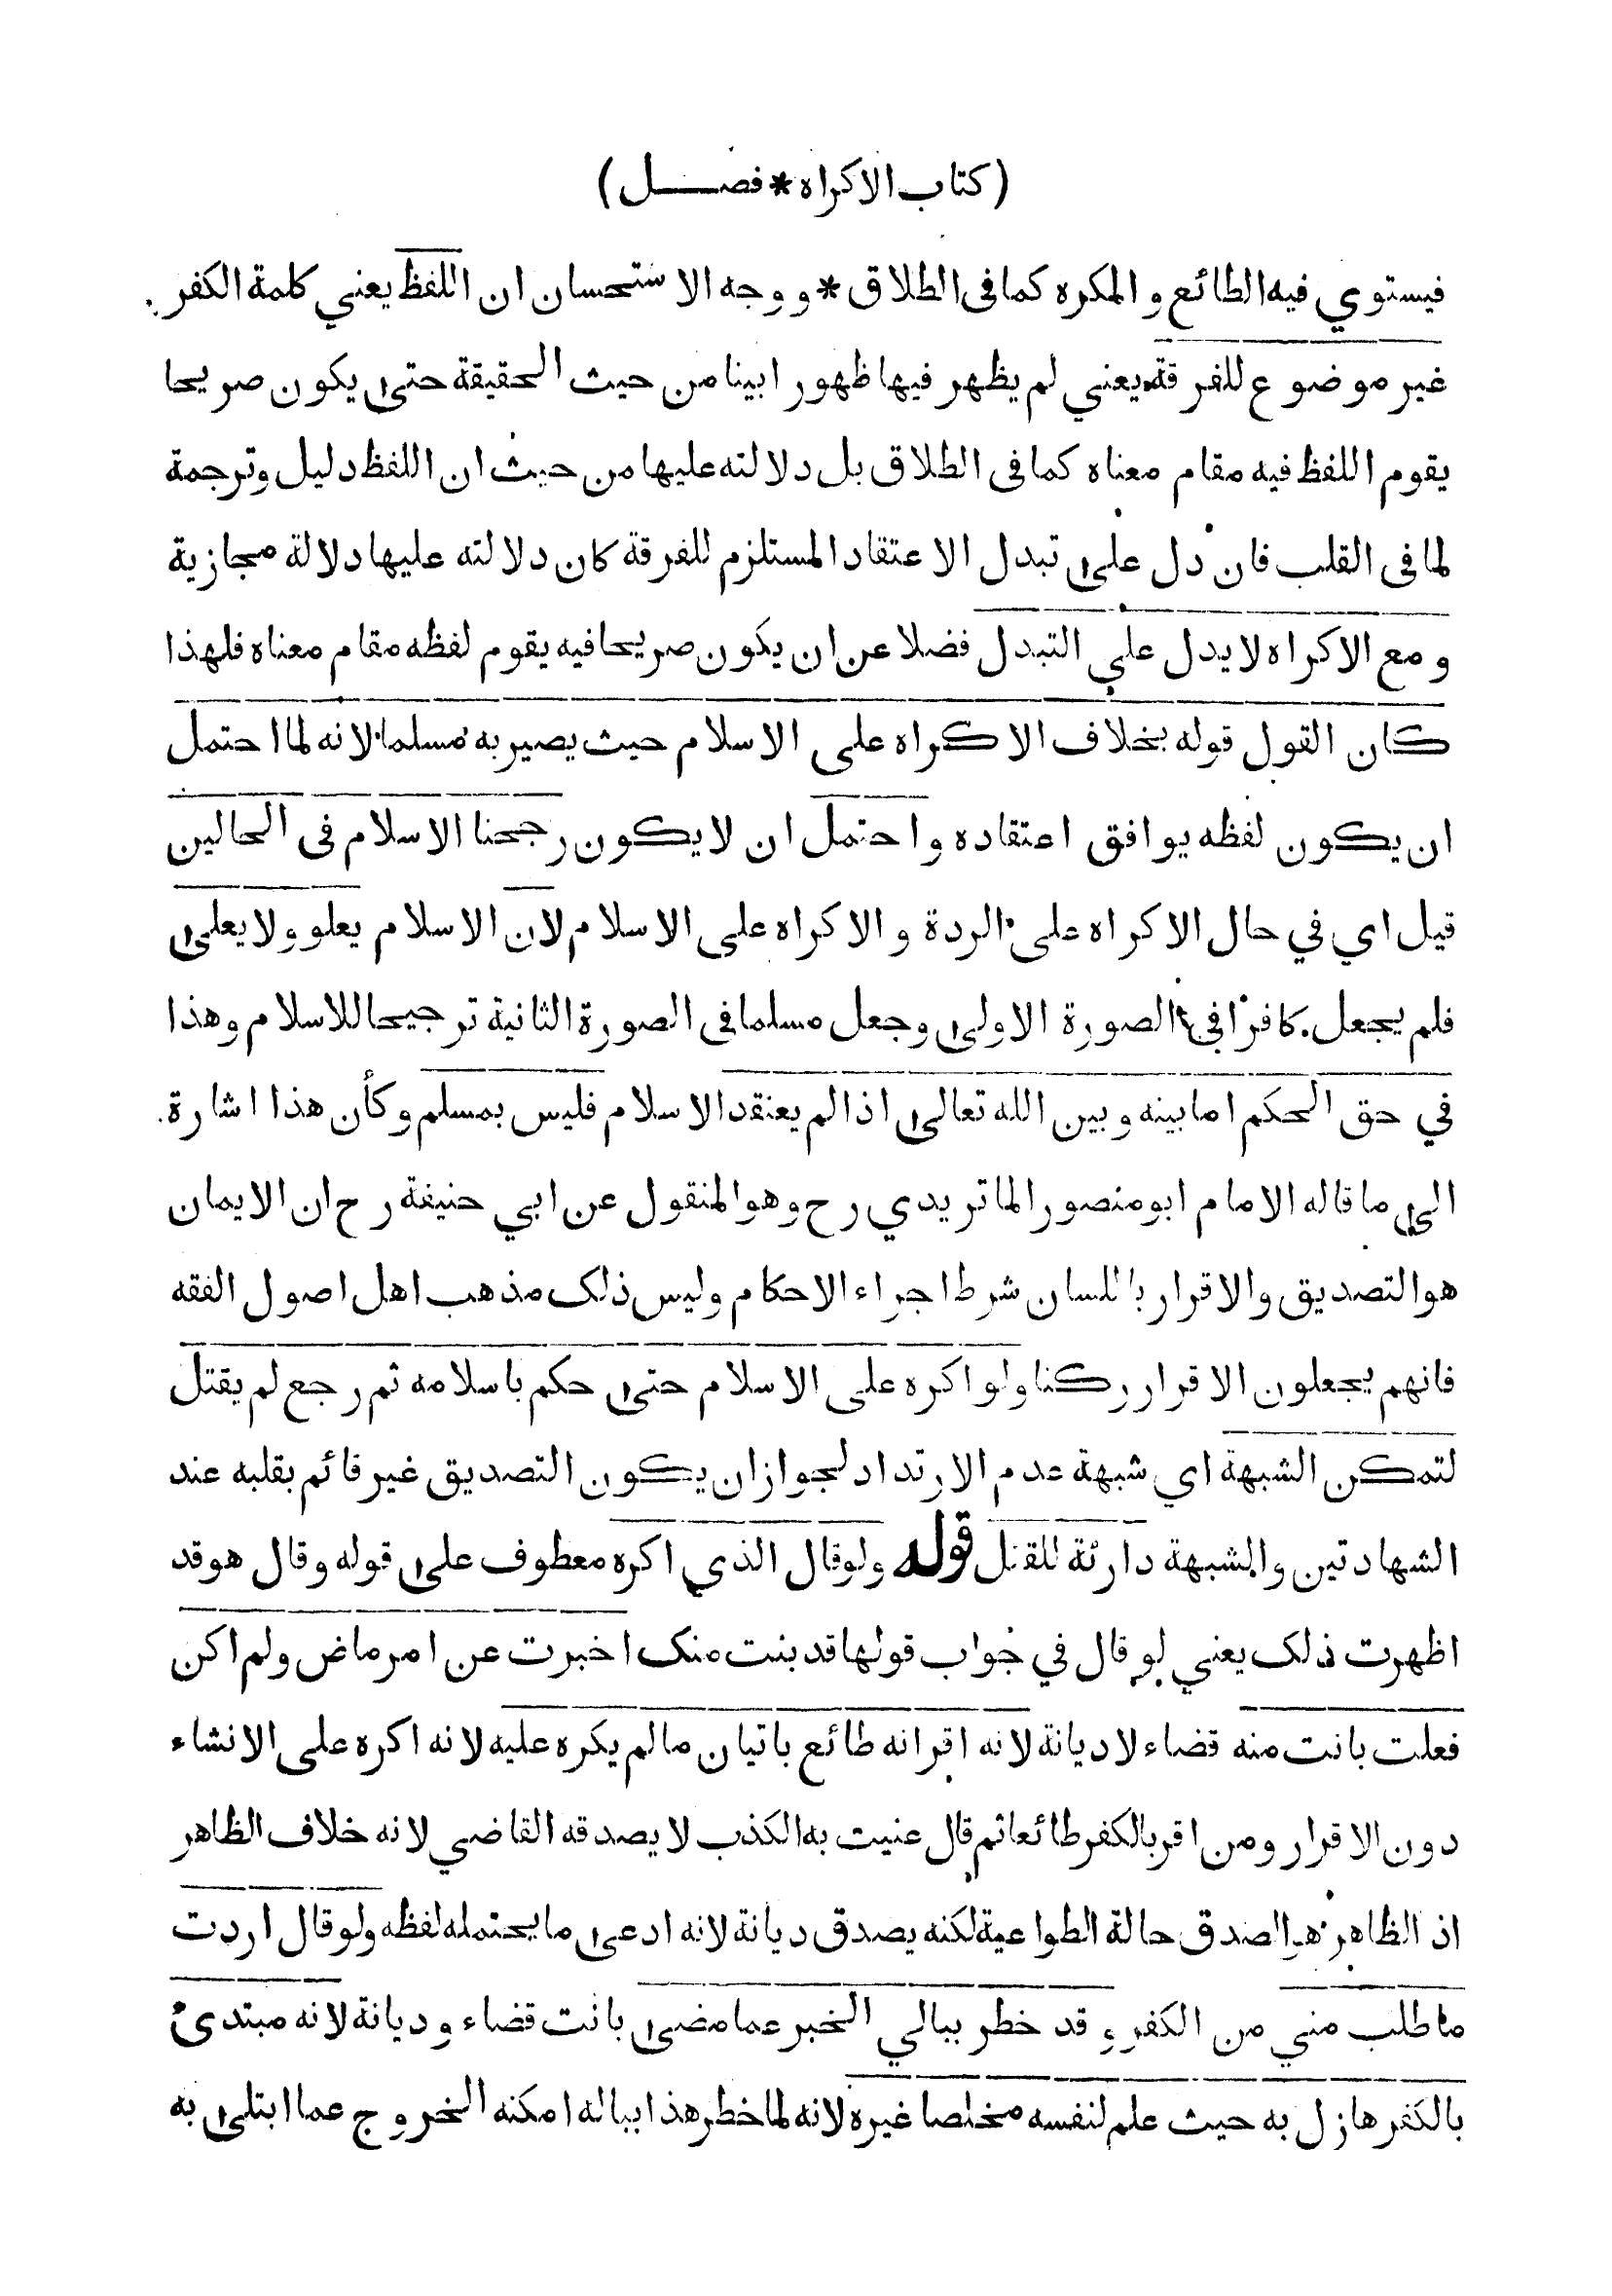 (كتاب الاكراه * فصــل)
فيستوي فيه الطائع والمكره كما فى الطلاق * ووجه الاستحسان ان اللفظ يعني كلمة الكفر
غير موضوع للفرقة يعني لم يظهر فيها ظهورا بينا من حيث الحقيقة حتى يكون صريحا
يقوم اللفظ فيه مقام معناه كما فى الطلاق بل دلالته عليها من حيث ان اللفظ دليل وترجمة
لما فى القلب فان دل على تبدل الاعتقاد المستلزم للفرقة كان دلالته عليها دلالة مجازية
ومع الاكراه لا يدل على التبدل فضلا عن ان يكون صريحا فيه يقوم لفظه مقام معناه فلهذا
كان القول قوله بخلاف الاكراه على الاسلام حيث يصير به مسلما لانه لما احتمل
ان يكون لفظه يوافق اعتقاده واحتمل ان لا يكون رجحنا الاسلام فى الحالين
قيل اي في حال الاكراه على الردة والاكراه على الاسلام لان الاسلام يعلو ولا يعلى
فلم يجعل كافرا في الصورة الاولى وجعل مسلما فى الصورة الثانية ترجيحا للاسلام وهذا
في حق الحكم اما بينه وبين الله تعالى اذا لم يعتقد الاسلام فليس بمسلم وكأن هذا اشارة
الى ما قاله الامام ابو منصور الماتريدي رح وهو المنقول عن ابي حنيفة رح ان الايمان
هو التصديق والاقرار باللسان شرط اجراء الاحكام وليس ذلك مذهب اهل اصول الفقه
فانهم يجعلون الاقرار ركنا ولو اكره على الاسلام حتى حكم باسلامه ثم رجع لم يقتل
لتمكن الشبهة اي شبهة عدم الارتداد لجواز ان يكون التصديق غير قائم بقلبه عند
الشهادتين والشبهة دارئة للقتل قوله ولو قال الذي اكره معطوف على قوله وقال هو قد
اظهرت ذلك يعني لو قال في جواب قولها قد بنت منك اخبرت عن امر ماض ولم اكن
فعلت بانت منه قضاء لا ديانة لانه اقر انه طائع باتيان ما لم يكره عليه لانه اكره على الانشاء
دون الاقرار ومن اقر بالكفر طائعا ثم قال عنيت به الكذب لا يصدقه القاضي لانه خلاف الظاهر
اذ الظاهر هو الصدق حالة الطواعية لكنه يصدق ديانة لانه ادعى ما يحتمله لفظه ولو قال اردت
ما طلب مني من الكفر وقد خطر ببالي الخبر عما مضى بانت قضاء وديانة لانه مبتدئ
بالكفر هازل به حيث علم لنفسه مخلصا غيره لانه لما خطر هذا بباله امكنه الخروج عما ابتلى به